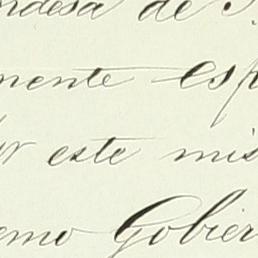 ndesa de
mente esp
or este mis
emo Gobier